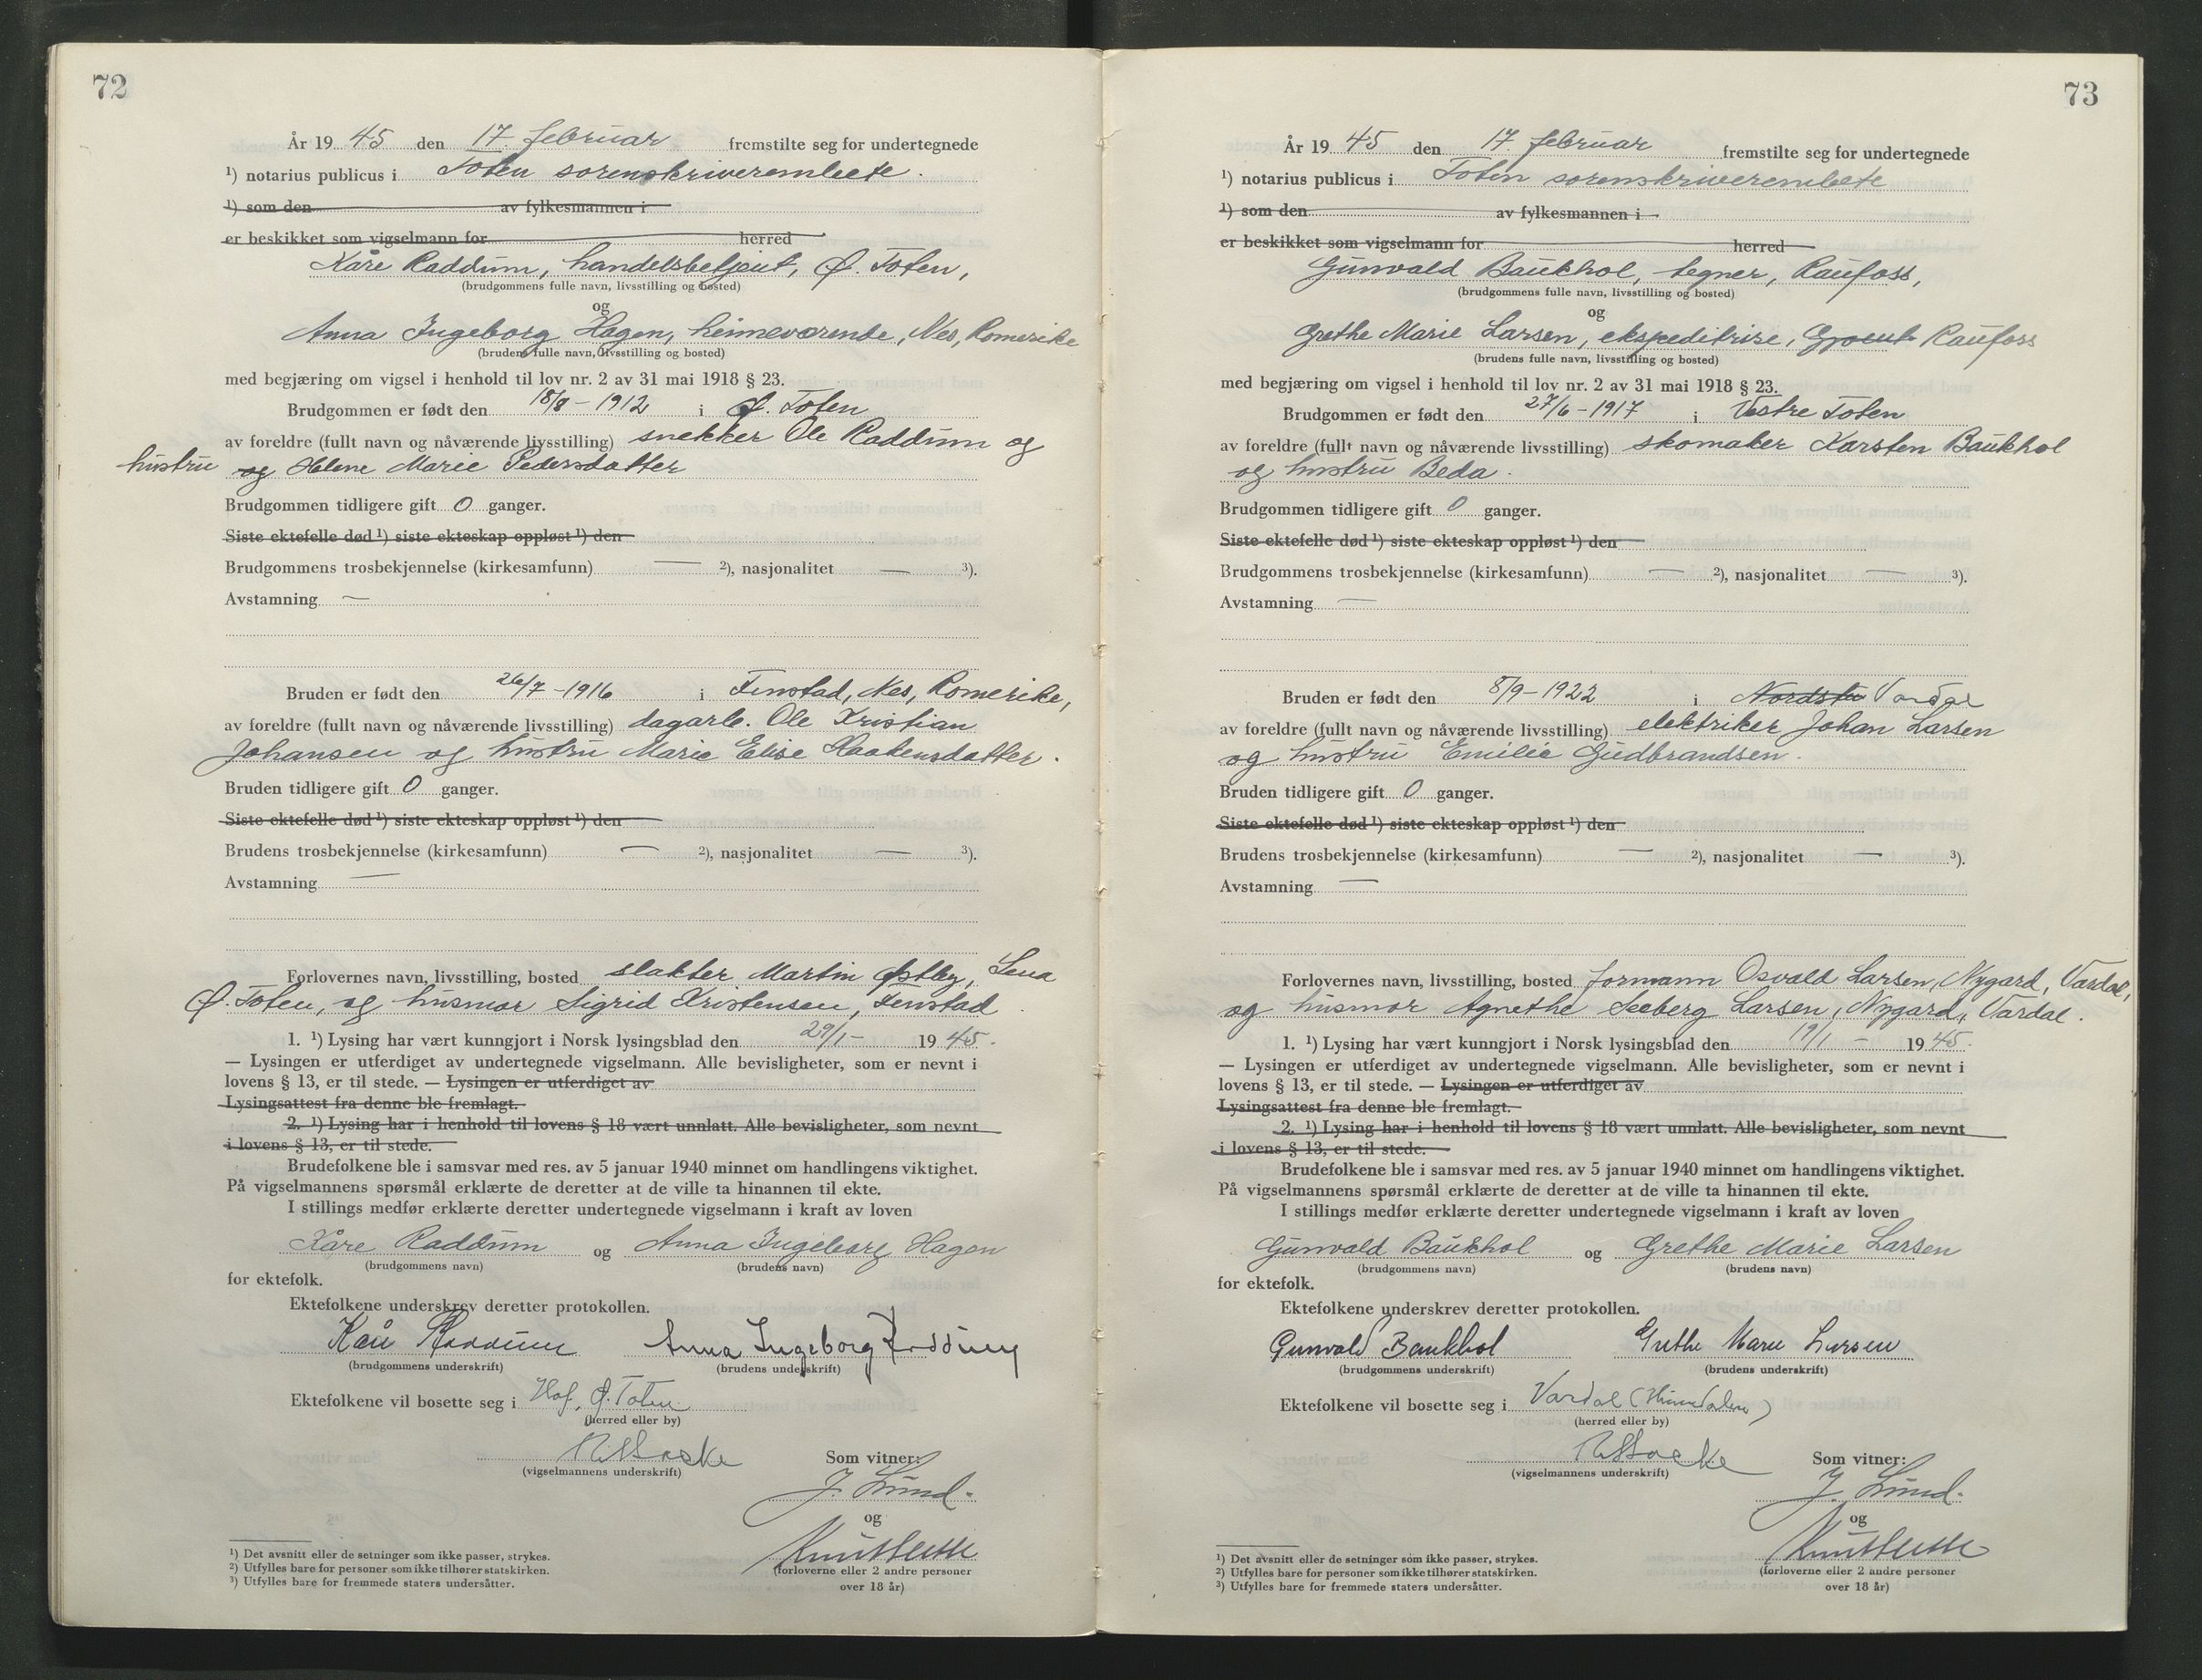 72
År 19 45 den 17. februar fremstilte seg for undertegnede
¹) notarius publicus i Toten sorenskriverembete.
¹) som den av fylkesmannen i
er beskikket som vigselmann for herred
Kåre Raddum, handelsbetjent, Ø. Toten,
(brudgommens fulle navn, livsstilling og bosted)
og
Anna Ingeborg Hagen, heimeværende, Nes, Romerike
(brudens fulle navn, livsstilling og bosted)
med begjæring om vigsel i henhold til lov nr. 2 av 31 mai 1918 § 23.
Brudgommen er født den 18/8 - 1912 i Ø. Toten
av foreldre (fullt navn og nåværende livsstilling) snekker Ole Raddum og
hustru og Helene Marie Pedersdatter
Brudgommen tidligere gift 0 ganger.
Siste ektefelle død ¹) siste ekteskap oppløst ¹) den
Brudgommens trosbekjennelse (kirkesamfunn) — ²), nasjonalitet — ³).
Avstamning —
Bruden er født den 26/7 - 1916 i Fenstad, Nes, Romerike,
av foreldre (fullt navn og nåværende livsstilling) dagarb. Ole Kristian
Johansen og hustru Marie Elise Haakensdatter.
Bruden tidligere gift 0 ganger.
Siste ektefelle død ¹) siste ekteskap oppløst ¹) den
Brudens trosbekjennelse (kirkesamfunn) — ²), nasjonalitet — ³).
Avstamning —
Forlovernes navn, livsstilling, bosted slakter Martin Østby, Lena
Ø. Toten, og husmor Sigrid Kristensen, Fenstad
1. ¹) Lysing har vært kunngjort i Norsk lysingsblad den 29/1 - 19 45.
— Lysingen er utferdiget av undertegnede vigselmann. Alle bevisligheter, som er nevnt i
lovens § 13, er til stede. — Lysingen er utferdiget av
Lysingsattest fra denne ble fremlagt.
2. ¹) Lysing har i henhold til lovens § 18 vært unnlatt. Alle bevisligheter, som nevnt
i lovens § 13, er til stede.
Brudefolkene ble i samsvar med res. av 5 januar 1940 minnet om handlingens viktighet.
På vigselmannens spørsmål erklærte de deretter at de ville ta hinannen til ekte.
I stillings medfør erklærte deretter undertegnede vigselmann i kraft av loven
Kåre Raddum og Anna Ingeborg Hagen
(brudgommens navn) (brudens navn)
for ektefolk.
Ektefolkene underskrev deretter protokollen.
Kåre Raddum Anna Ingeborg Raddum
(brudgommens underskrift) (brudens underskrift)
Ektefolkene vil bosette seg i Hof, Ø. Toten
(herred eller by)
(vigselmannens underskrift)
Som vitner:
J. Lund.
og
(forloverne eller 2 andre personer
over 18 år)
¹) Det avsnitt eller de setninger som ikke passer, strykes.
²) Utfylles bare for personer som ikke tilhører statskirken.
³) Utfylles bare for fremmede staters undersåtter.
73
År 19 45 den 17. februar fremstilte seg for undertegnede
¹) notarius publicus i Toten sorenskriverembete
¹) som den av fylkesmannen i
er beskikket som vigselmann for herred
Gunvald Baukhol, tegner, Raufoss,
(brudgommens fulle navn, livsstilling og bosted)
og
Grethe Marie Larsen, ekspeditrise, Raufoss
(brudens fulle navn, livsstilling og bosted)
med begjæring om vigsel i henhold til lov nr. 2 av 31 mai 1918 § 23.
Brudgommen er født den 27/6 - 1917 i Vestre Toten
av foreldre (fullt navn og nåværende livsstilling) skomaker Karsten Baukhol
og hustru Beda.
Brudgommen tidligere gift 0 ganger.
Siste ektefelle død ¹) siste ekteskap oppløst ¹) den
Brudgommens trosbekjennelse (kirkesamfunn) — ²), nasjonalitet — ³).
Avstamning —
Bruden er født den 8/9 - 1922 i Vardal
av foreldre (fullt navn og nåværende livsstilling) elektriker Johan Larsen
og hustru Emilie Gudbrandsen.
Bruden tidligere gift 0 ganger.
Siste ektefelle død ¹) siste ekteskap oppløst ¹) den
Brudens trosbekjennelse (kirkesamfunn) — ²), nasjonalitet — ³).
Avstamning —
Forlovernes navn, livsstilling, bosted formann Osvald Larsen, Nygard, Vardal,
og husmor Agnethe Seeberg Larsen, Nygard, Vardal.
1. ¹) Lysing har vært kunngjort i Norsk lysingsblad den 19/1 - 19 45.
— Lysingen er utferdiget av undertegnede vigselmann. Alle bevisligheter, som er nevnt i
lovens § 13, er til stede. — Lysingen er utferdiget av
Lysingsattest fra denne ble fremlagt.
2. ¹) Lysing har i henhold til lovens § 18 vært unnlatt. Alle bevisligheter, som nevnt
i lovens § 13, er til stede.
Brudefolkene ble i samsvar med res. av 5 januar 1940 minnet om handlingens viktighet.
På vigselmannens spørsmål erklærte de deretter at de ville ta hinannen til ekte.
I stillings medfør erklærte deretter undertegnede vigselmann i kraft av loven
Gunvald Baukhol og Grethe Marie Larsen
(brudgommens navn) (brudens navn)
for ektefolk.
Ektefolkene underskrev deretter protokollen.
Gunvald Baukhol Grethe Marie Larsen
(brudgommens underskrift) (brudens underskrift)
Ektefolkene vil bosette seg i Vardal (Hunndalen)
(herred eller by)
(vigselmannens underskrift)
Som vitner:
J. Lund.
og
(forloverne eller 2 andre personer
over 18 år)
¹) Det avsnitt eller de setninger som ikke passer, strykes.
²) Utfylles bare for personer som ikke tilhører statskirken.
³) Utfylles bare for fremmede staters undersåtter.